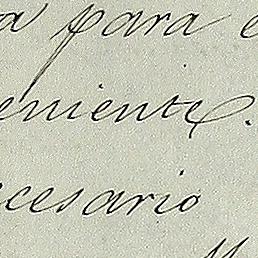 a para e
eniente.
cesario